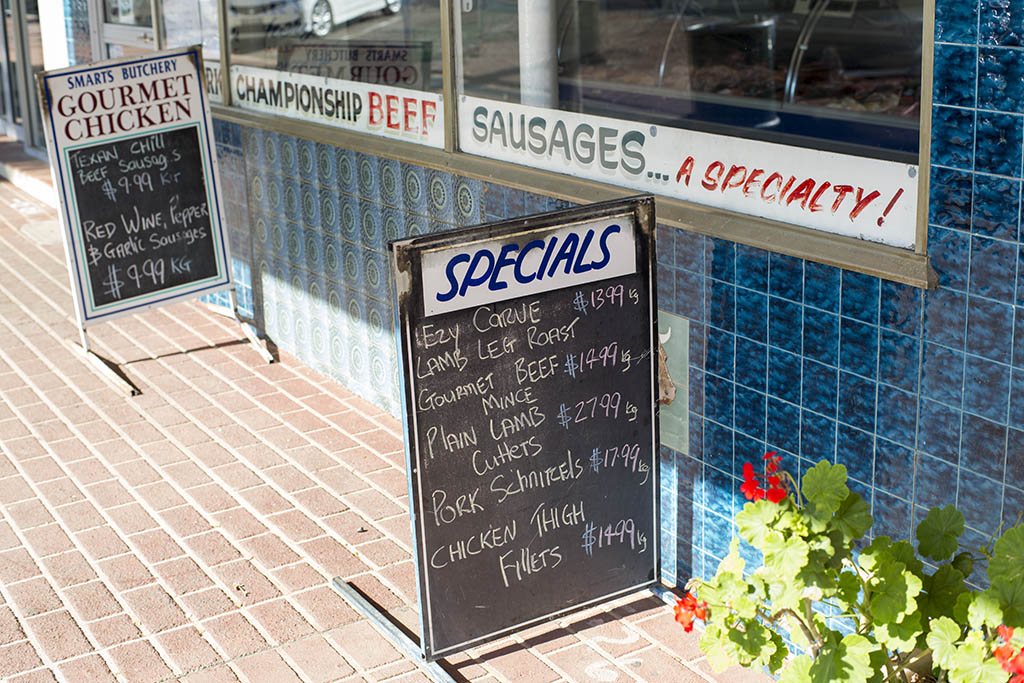 SMARTS BUTCHERY
GOURMET
CHICKEN
TEXAN CHILLI
BEEF SAUSAGES
$9.99 KG
RED WINE, PEPPER
& GARLIC SAUSAGES
$9.99 KG
SMARTS BUTCHERY
GOURMET
CHAMPIONSHIP BEEF
SAUSAGES... A SPECIALTY!
SPECIALS
EZY CARVE $13.99 Kg
LAMB LEG ROAST
GOURMET BEEF $14.99 Kg
MINCE
PLAIN LAMB $27.99 Kg
CUTLETS
PORK SCHNITZELS $17.99 Kg
CHICKEN THIGH
FILLETS $14.99 Kg